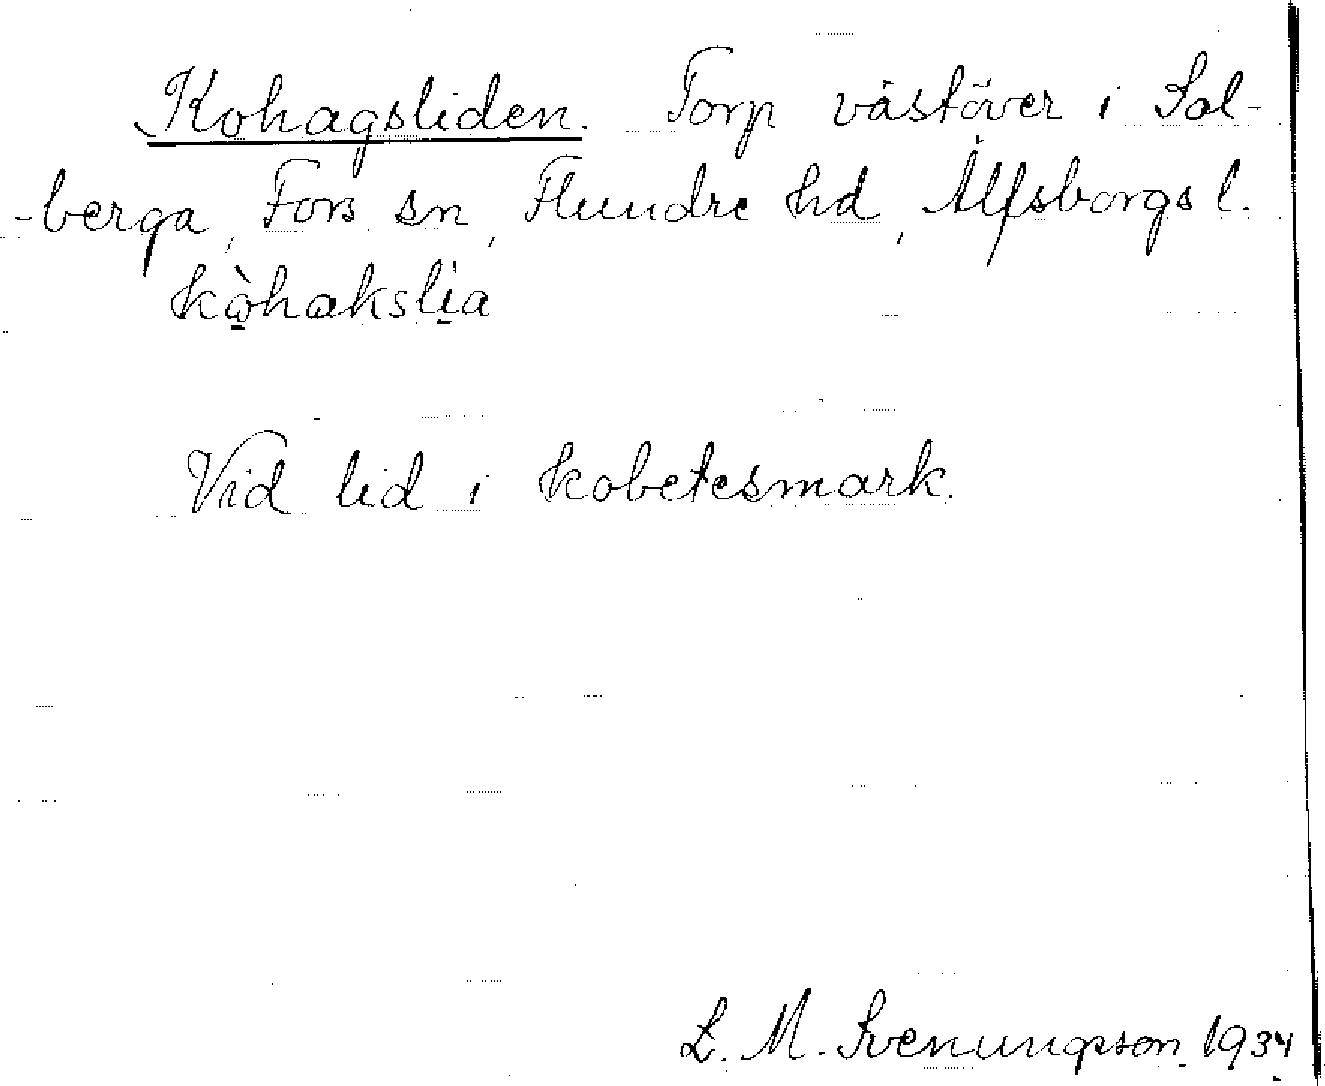 Kohagsliden. Torp västöver i Sol-
-berga, Fors sn, Flundre hd, Älfsborgs l.
kòhakslia
Vid lid i kobetesmark.
L. M. Svenungsson 1934